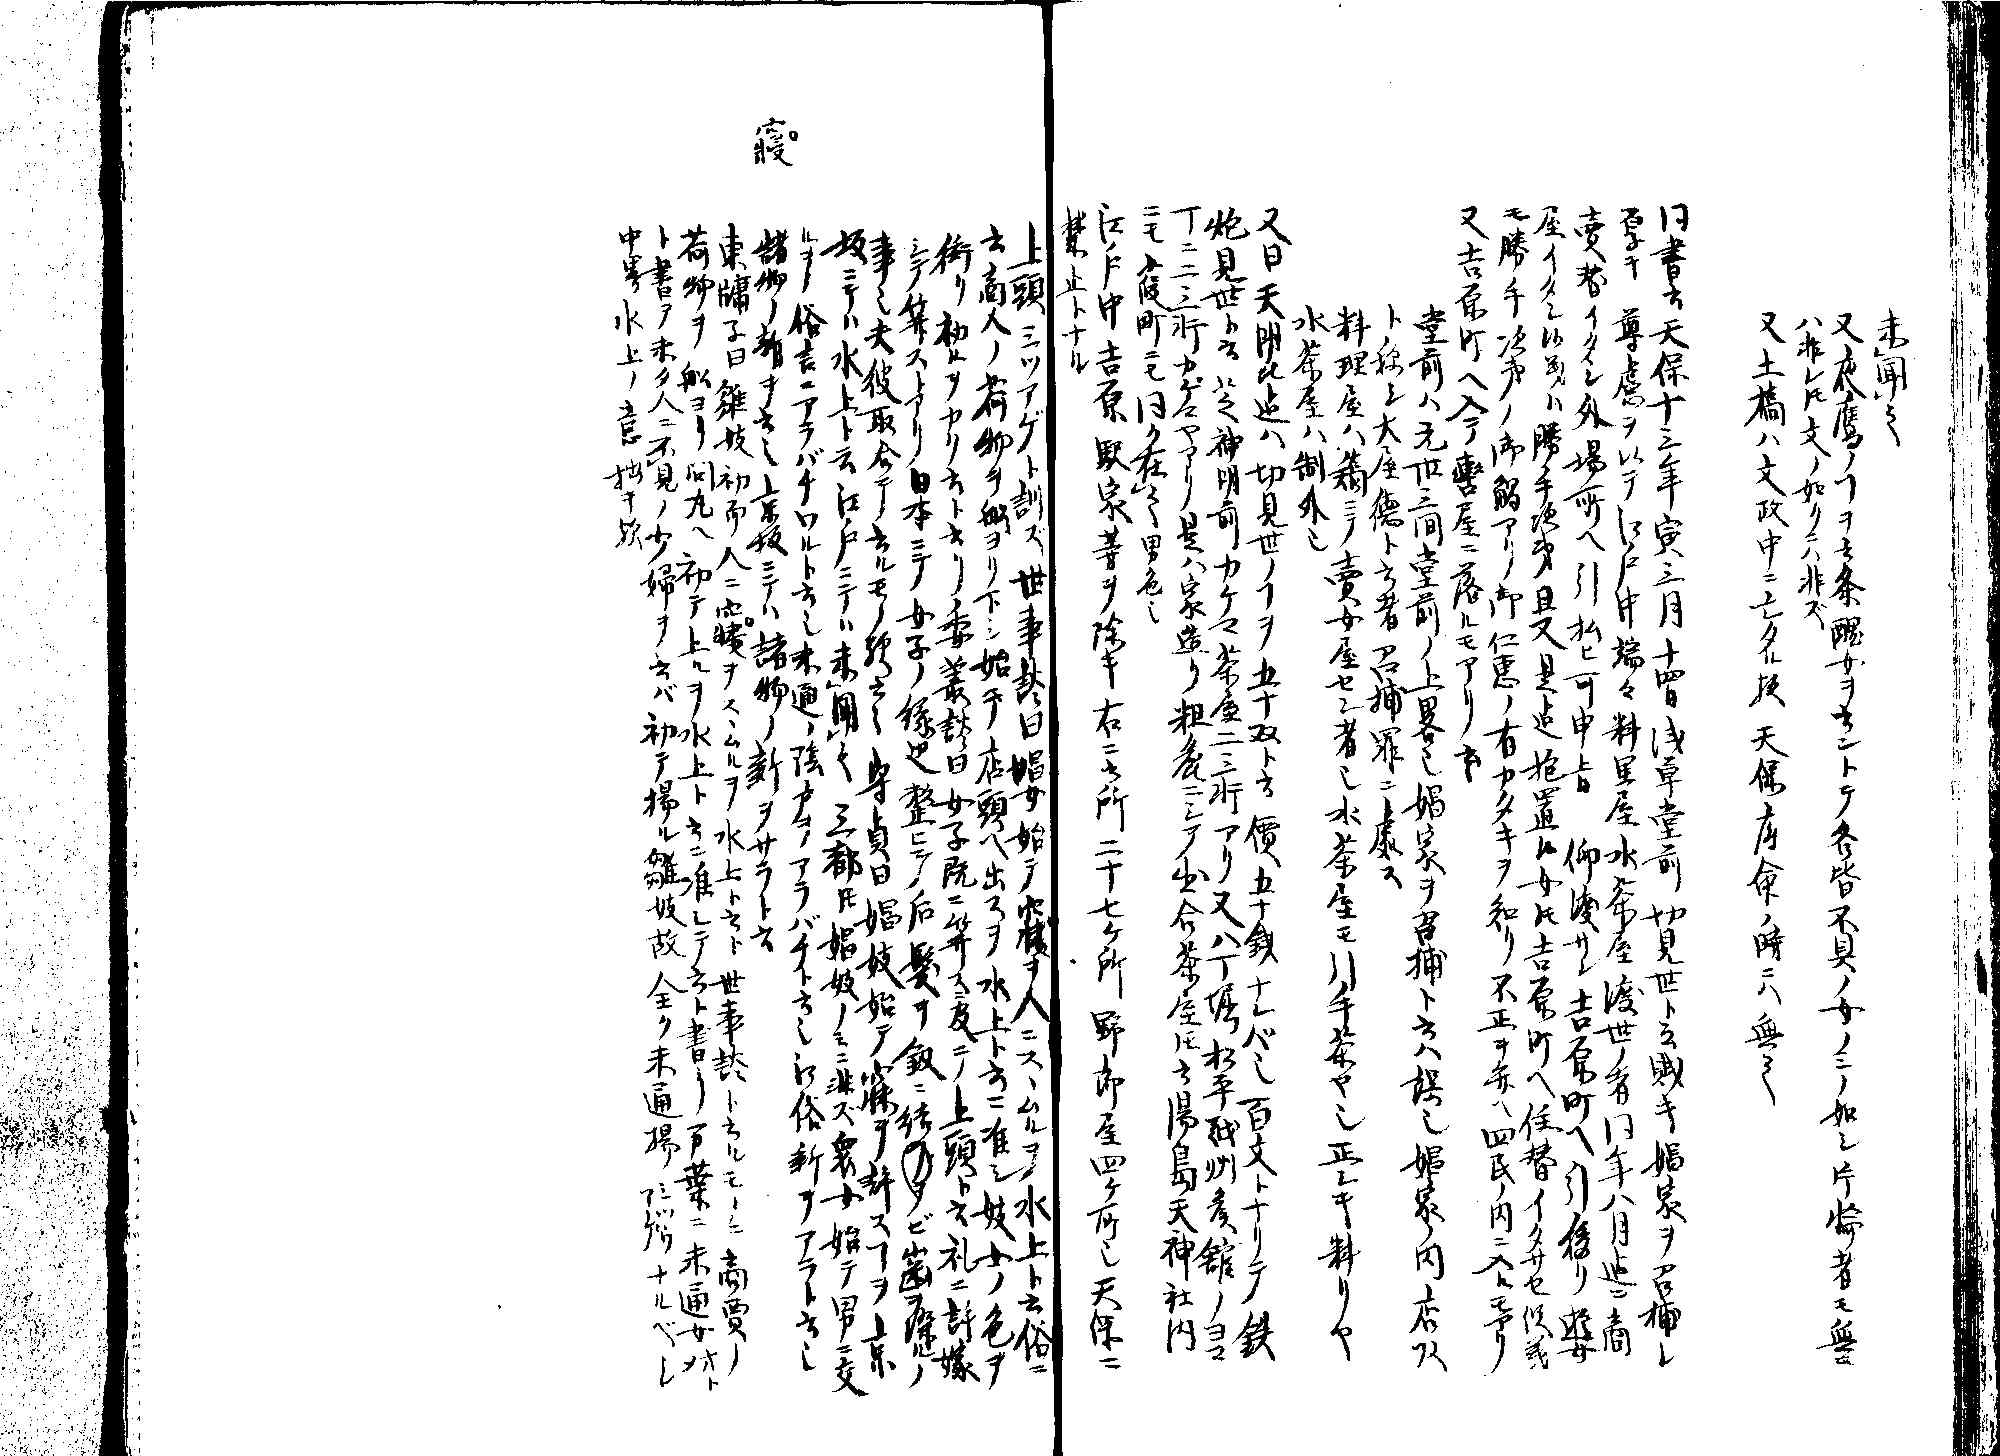 未聞之
又夜鷹ノヿヲ云条醜女ヲ云ントテ各皆不具ノ女ノミノ如シ片輪者モ無ニ
ハ非レ𪜈文ノ如クニハ非ズ
又土橋ハ文政中ニ亡タル歟天保府命ノ時ニハ無之
同書云天保十三年寅三月十四日浅草堂前切見世ト云賤キ娼家ヲ召捕レ
厚キ 尊慮ヲ以テ江戸中端々料理屋水茶屋渡世ノ者同年八月迄ニ商
賣替イタシ外場所ヘ引払ヒ可申旨 仰渡サレ吉原町ヘ引移リ遊女
屋イタシ候義ハ勝手次第且又是迄抱置候女𪜈吉原町ヘ住替イタサセ候義
モ勝手次第ノ御觸アリノ御仁恵ノ有カタキヲ知リ不正ヲ弁ヘ四民ノ内ニ入ルモアリ
又吉原町ヘ入テ轡屋ニ落ルモアリ云々
堂前ハ元世三間堂前ノ上畧也娼家ヲ召捕ト云ハ誤也娼家ノ内店又
ト称シ大屋徳ト云者召捕罪ニ處ス
料理屋ハ窃ニ賣女屋セシ者也水茶屋モ引手茶ヤ也正シキ料リヤ
水茶屋ハ制外也
又曰天明此迄ハ切見世ノヿヲ五十双ト云價五十銭ナレバ也百文トナリテ鉄
炮見世ト云芝神明前カケマ茶屋二三行アリ又八丁堀松平越州矦舘ノヨコ
丁ニ二三行カゲマヤアリ是ハ家造リ粗麁ニシテ出合茶屋𪜈云湯島天神社内
ニモ葭町ニモ同ク在之男色也
江ノド中吉原駅家等ヲ除キ右ニ云所二十七ケ所野郎屋四ケ所也天保ニ
禁止トナル
上頭 ミツアゲト訓ズ世事談曰娼女始テ寝ヲ人ニスヽムルヲ水上ト云俗ニ
云商人ノ荷物ヲ舩ヨリ下シ始テ店頭ヘ出スヲ水上ト云ニ准シ妓女ノ色ヲ
衒リ初ルヲカリ云ト云リノ委叢談曰女子既ニ笄ス之ヲニノ上頭ト云礼ニ許嫁
シテ笄ストアリノ日本ニテ女子ノ縁迄整ヒテノ后髪ヲ釵ニ結ノヲビ歯ヲ染ルノ
事也夫彼取合テノ云ルモノ歟云々守貞曰娼妓始テ寐ヲ許スヿヲ京
坂ニテハ水上ト云江戸ニテハ未聞之三都𪜈娼妓ノミニ非ズ衆女始テ男ニ交
ルヲ俗言ニアラバチワルト云也未通ノ陰カヲアラバチト云也江俗新ヲアラト云也
諸物ノ新ヲ云也京坂ニテハ諸物ノ新ヲサラト云
東牗子曰雛妓初而人ニ寝ヲスヽムルヲ水上ト云ト世事談ニト云ルモノ也商賈ノ
荷物ヲ舩ヨリ问丸ヘ初テ上ルヲ水上ト云ニ准シテ云ト書リ万葉ニ未通女ヲト
ト書テ未タ人ニ不見ノ少婦ヲ云バ初テ揚ル雛妓故全ク未通揚ミツアゲナルベシ
中畧水上ノ意拙キ歟
寝